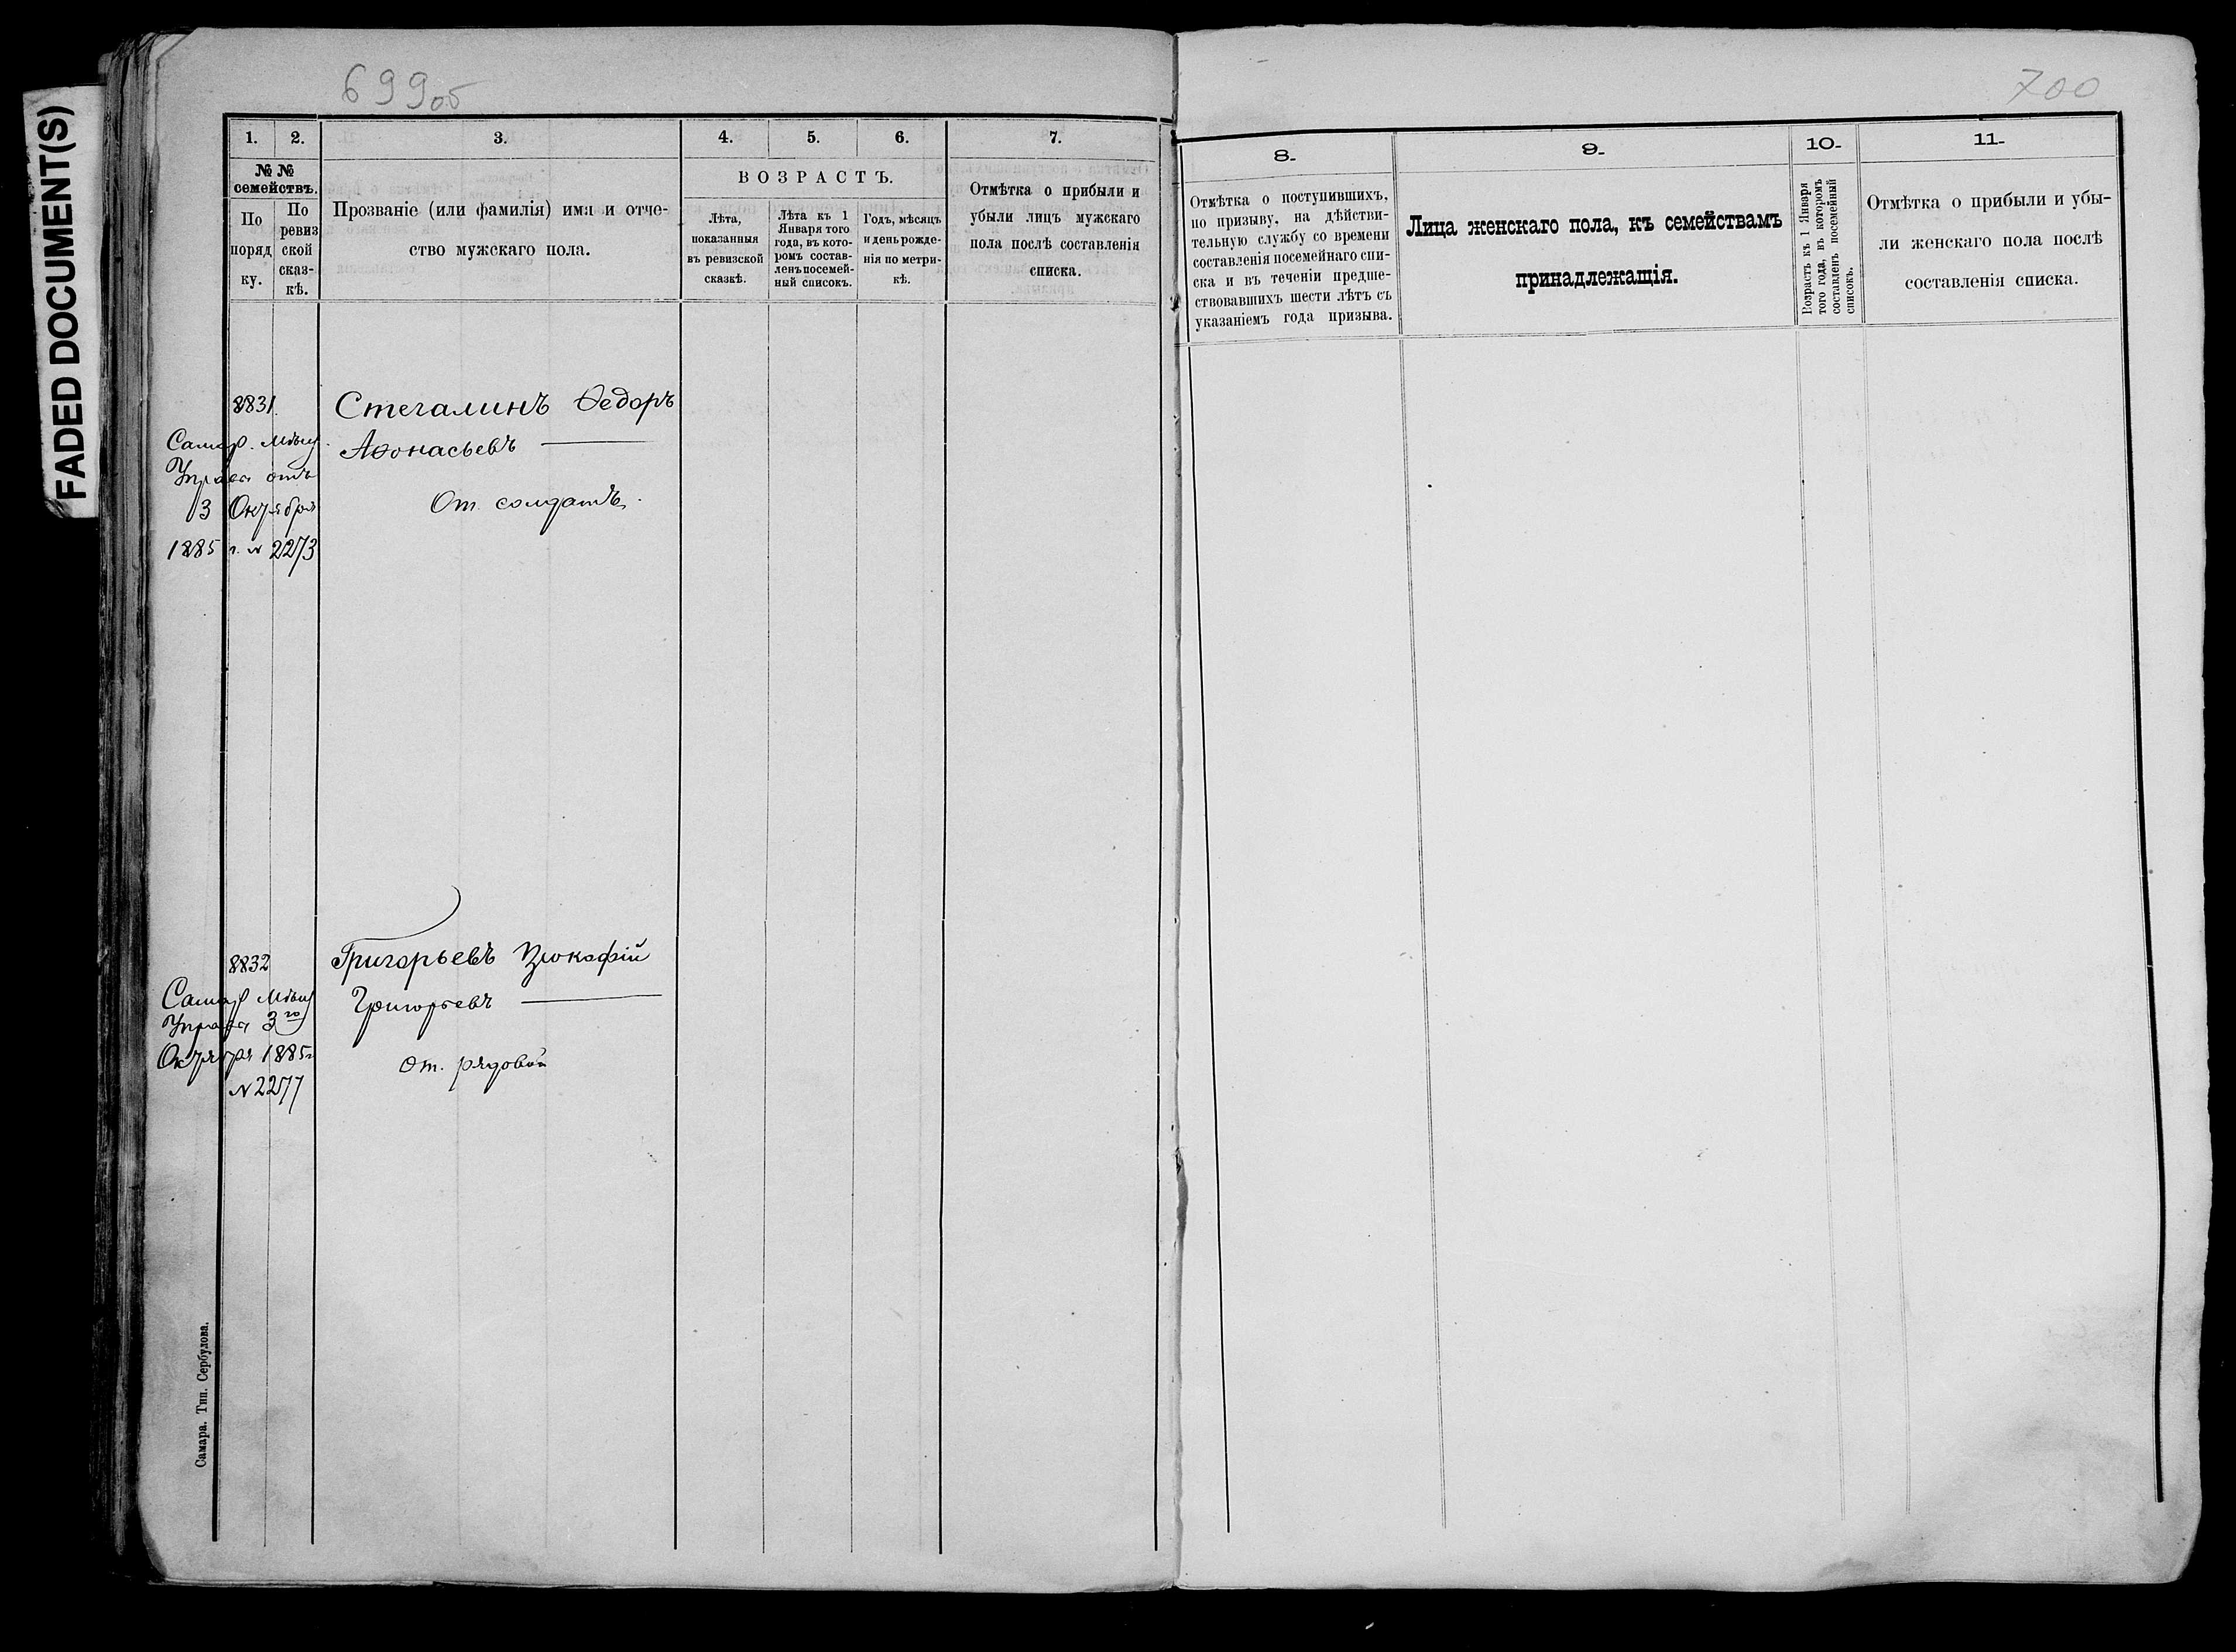 FADED DOCUMENT(S)
699об
700
1.
2.
3.
4.
5.
6.
7.
№ №
семействъ.
По
поряд
ку.
По
ревиз
ской
сказ-
кѣ.
Прозваніе (или фамилія) имя и отче-
ство мужскаго пола.
ВОЗРАСТЪ.
Лѣта,
показанныя
въ ревизской
сказкѣ.
Лѣта къ 1
Января того
года, въ кото-
ромъ состав-
ленъ посемей-
ный списокъ.
Годъ, мѣсяцъ
и день рожде-
нія по метри-
кѣ.
Отмѣтка о прибыли и
убыли лицъ мужскаго
пола послѣ составленія
списка.
8831.
Самар. Мѣщ.
Управа отъ
3 Октября
1885 г. № 2273
Стегалинъ Ѳедоръ
Аѳонасьевъ
От. солдатъ.
8832
Самар Мѣщ
Управа 3го
Октября 1885г
№ 2277
Григорьевъ
Григорьевъ
От. рядовой
Самара. Тип. Сербулова.
8.
9.
10.
11.
Отмѣтка о поступившихъ,
по призыву, на дѣйстви-
тельную службу со времени
составленія посемейнаго спи-
ска и въ теченіи предше-
ствовавшихъ шести лѣтъ съ
указаніемъ года призыва.
Лица женскаго пола, къ семействамъ
принадлежащія.
Возрастъ къ 1 Января
того года, въ которомъ
составленъ посемейный
списокъ.
Отмѣтка о прибыли и убы-
ли женскаго пола послѣ
составленія списка.